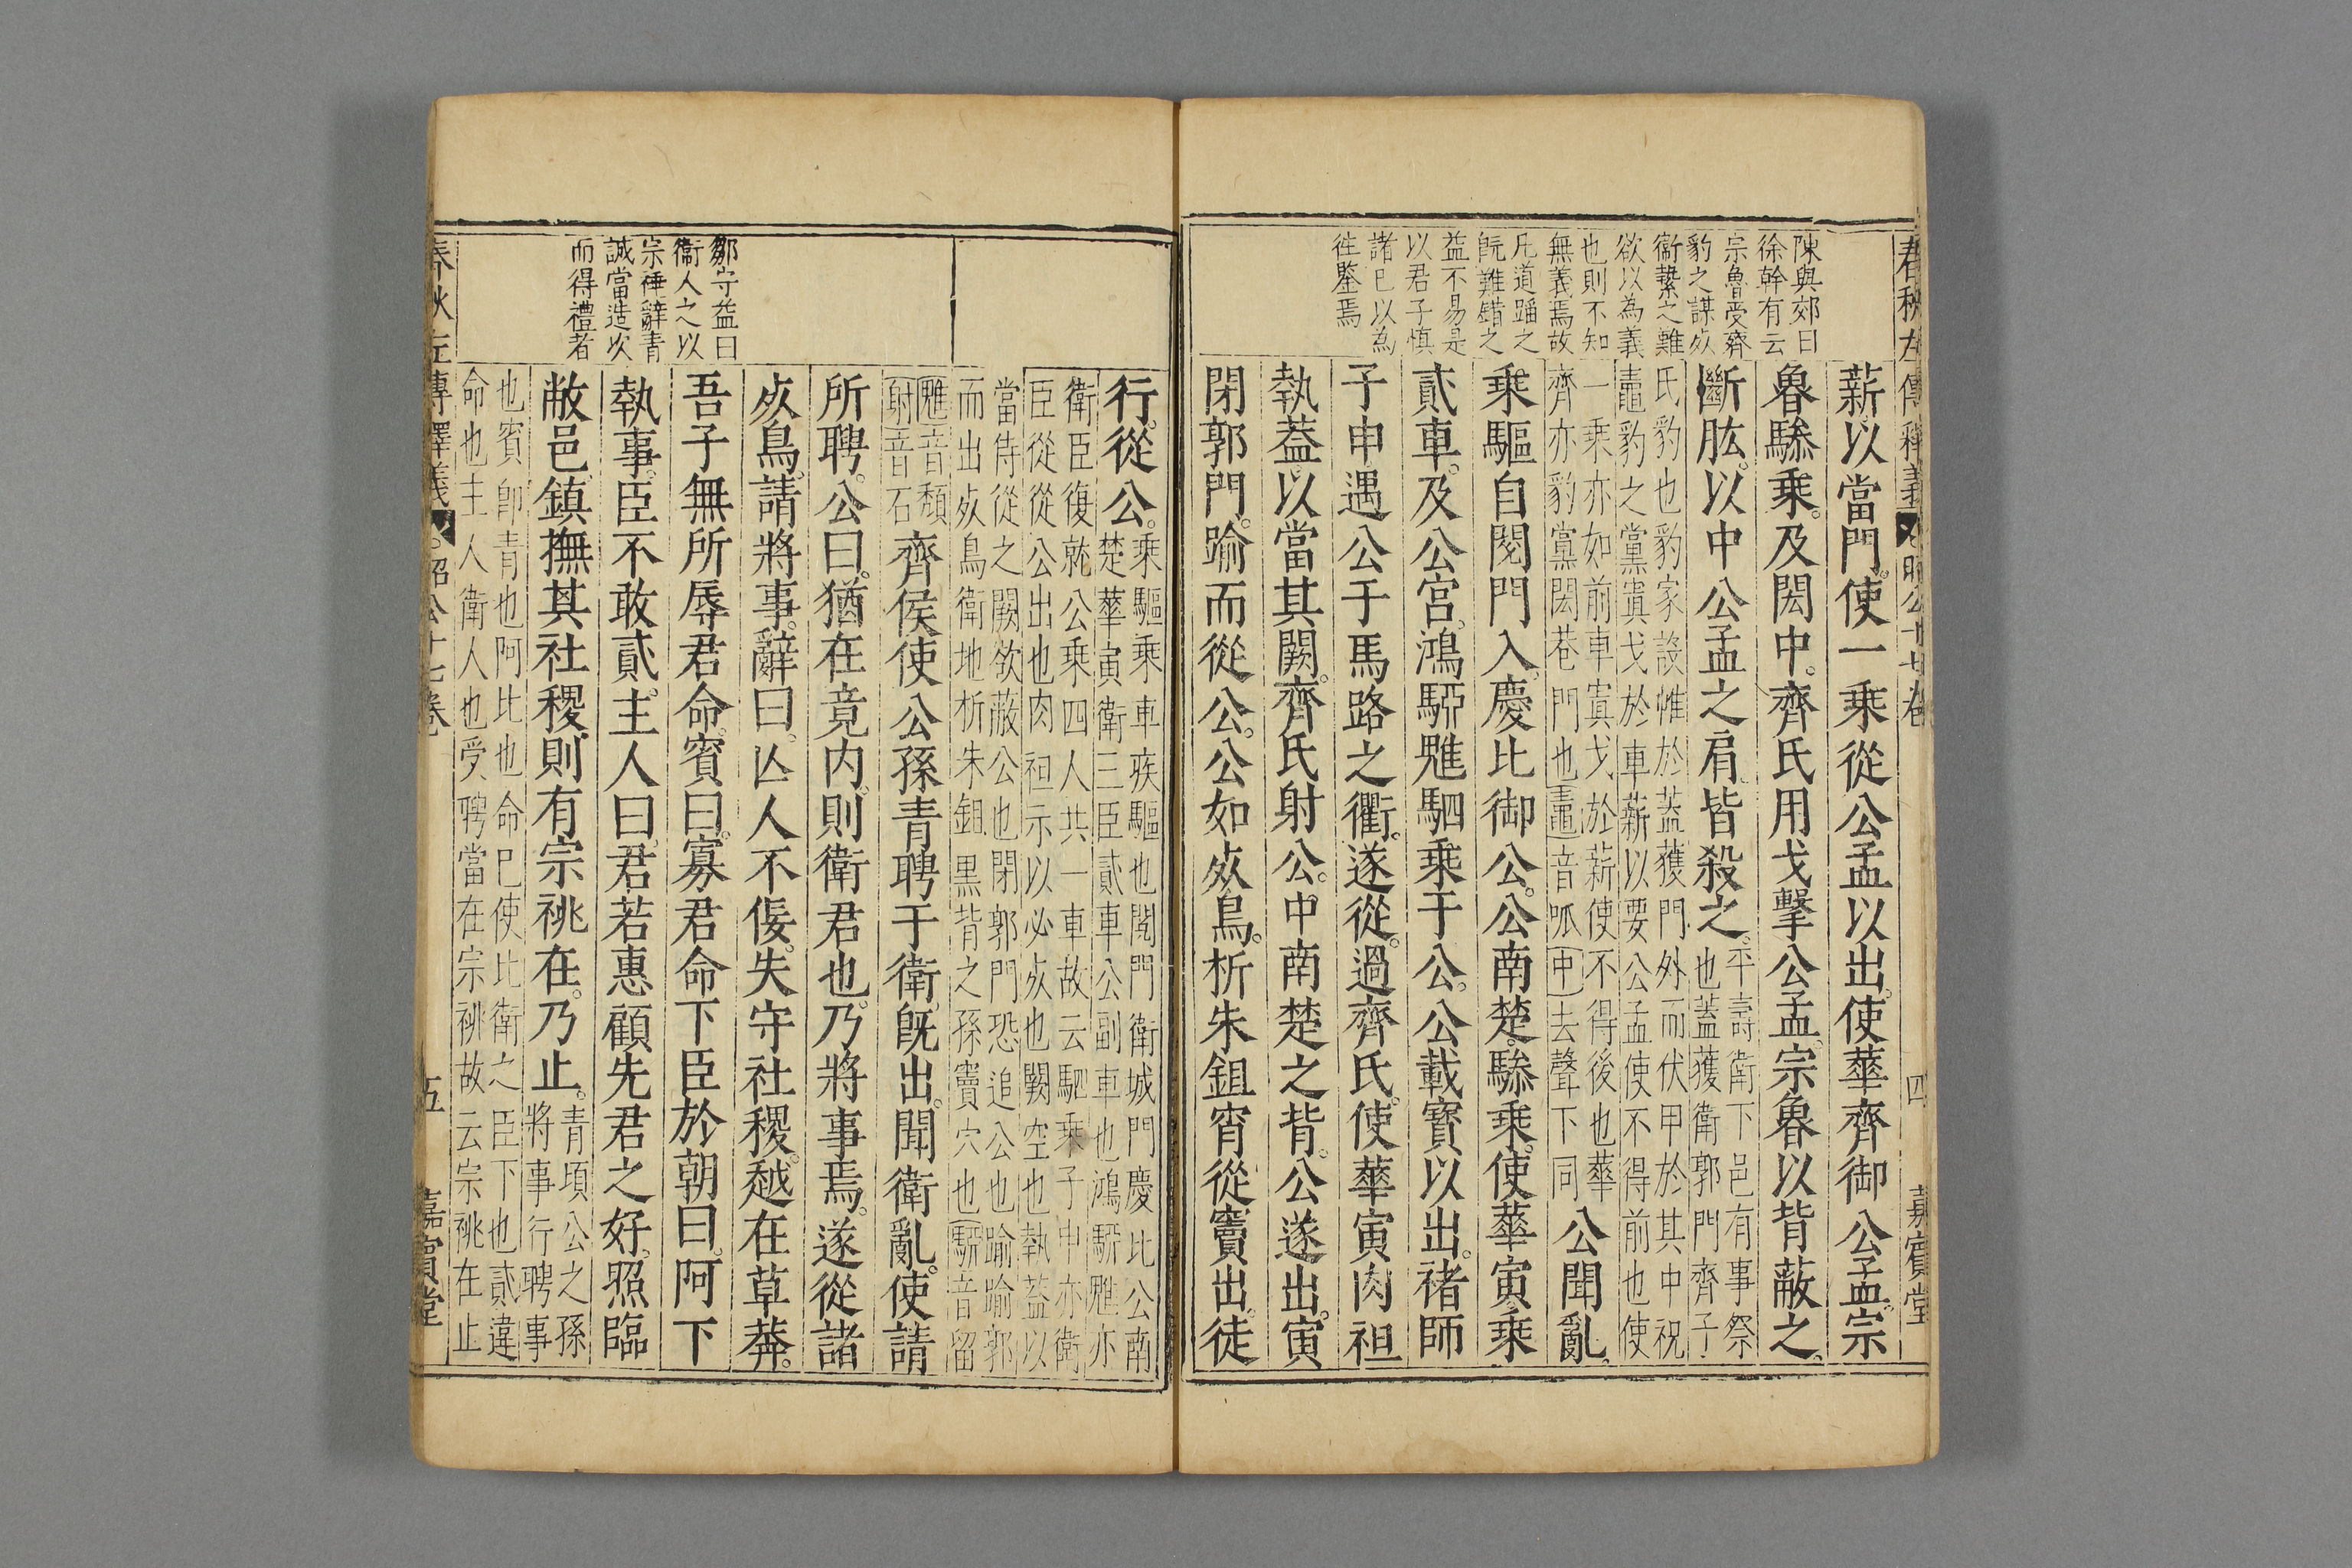 陳與郊曰
徐幹有云
宗魯受齊
豹之謀死
衞縶之難
欲以為義
也則不知
無義焉故
凡道蹈之
旣難錯之
益不易是
以君子慎
諸已以為
徃鑒焉
薪以當門使一乘從公孟以出使華齊御公孟宗
魯驂乘及閎中齊氏用戈擊公孟宗魯以背蔽之
斷肱以中公孟之肩皆殺之平壽衞下邑有事祭
也蓋獲衞郭門齊子
氏豹也豹家設帷於蓋獲門外而伏甲於其中祝
鼃豹之黨寘戈於車薪以要公孟使不得前也使
一乘亦如前車寘戈於薪使不得後也華
齊亦豹黨閎巷門也鼃音呱中去聲下同公聞亂
乘驅自閱門入慶比御公公南楚驂乘使華寅乘
貳車及公宮鴻駵魋駟乘于公公載寶以出褚師
子申遇公于馬路之衢遂從過齊氏使華寅肉袒
執蓋以當其闕齊氏射公中南楚之背公遂出寅
閉郭門踰而從公公如死鳥析朱鉏宵從竇出徒
春秋左傳釋義 昭公十七卷 四 嘉賓堂
鄒守益曰
衞人之以
宗祧辭青
誠當造次
而得禮者
行從公乘驅乘車疾驅也閱門衞城門慶比公南
楚華寅衞三臣貳車公副車也鴻駵魋亦
衞臣復就公乘四人共一車故云駟乘子申亦衞
臣從從公出也肉袒示以必死也闕空也執蓋以
當侍從之闕欲蔽公也閉郭門恐追公也踰踰郭
而出死鳥衞地析朱鉏黑背之孫竇穴也駵音留
魋音頹
射音石齊侯使公孫青聘于衞旣出聞衞亂使請
所聘公曰猶在竟內則衞君也乃將事焉遂從諸
死鳥請將事辭曰亾人不佞失守社稷越在草莽
吾子無所辱君命賓曰寡君命下臣於朝曰阿下
執事臣不敢貳主人曰君若惠顧先君之好照臨
敝邑鎮撫其社稷則有宗祧在乃止青頃公之孫
將事行聘事
也賓卽青也阿比也命巳使比衞之臣下也貳違
命也主人衞人也受聘當在宗祧故云宗祧在止
春秋左傳釋義 昭公十七卷 五 嘉賓堂